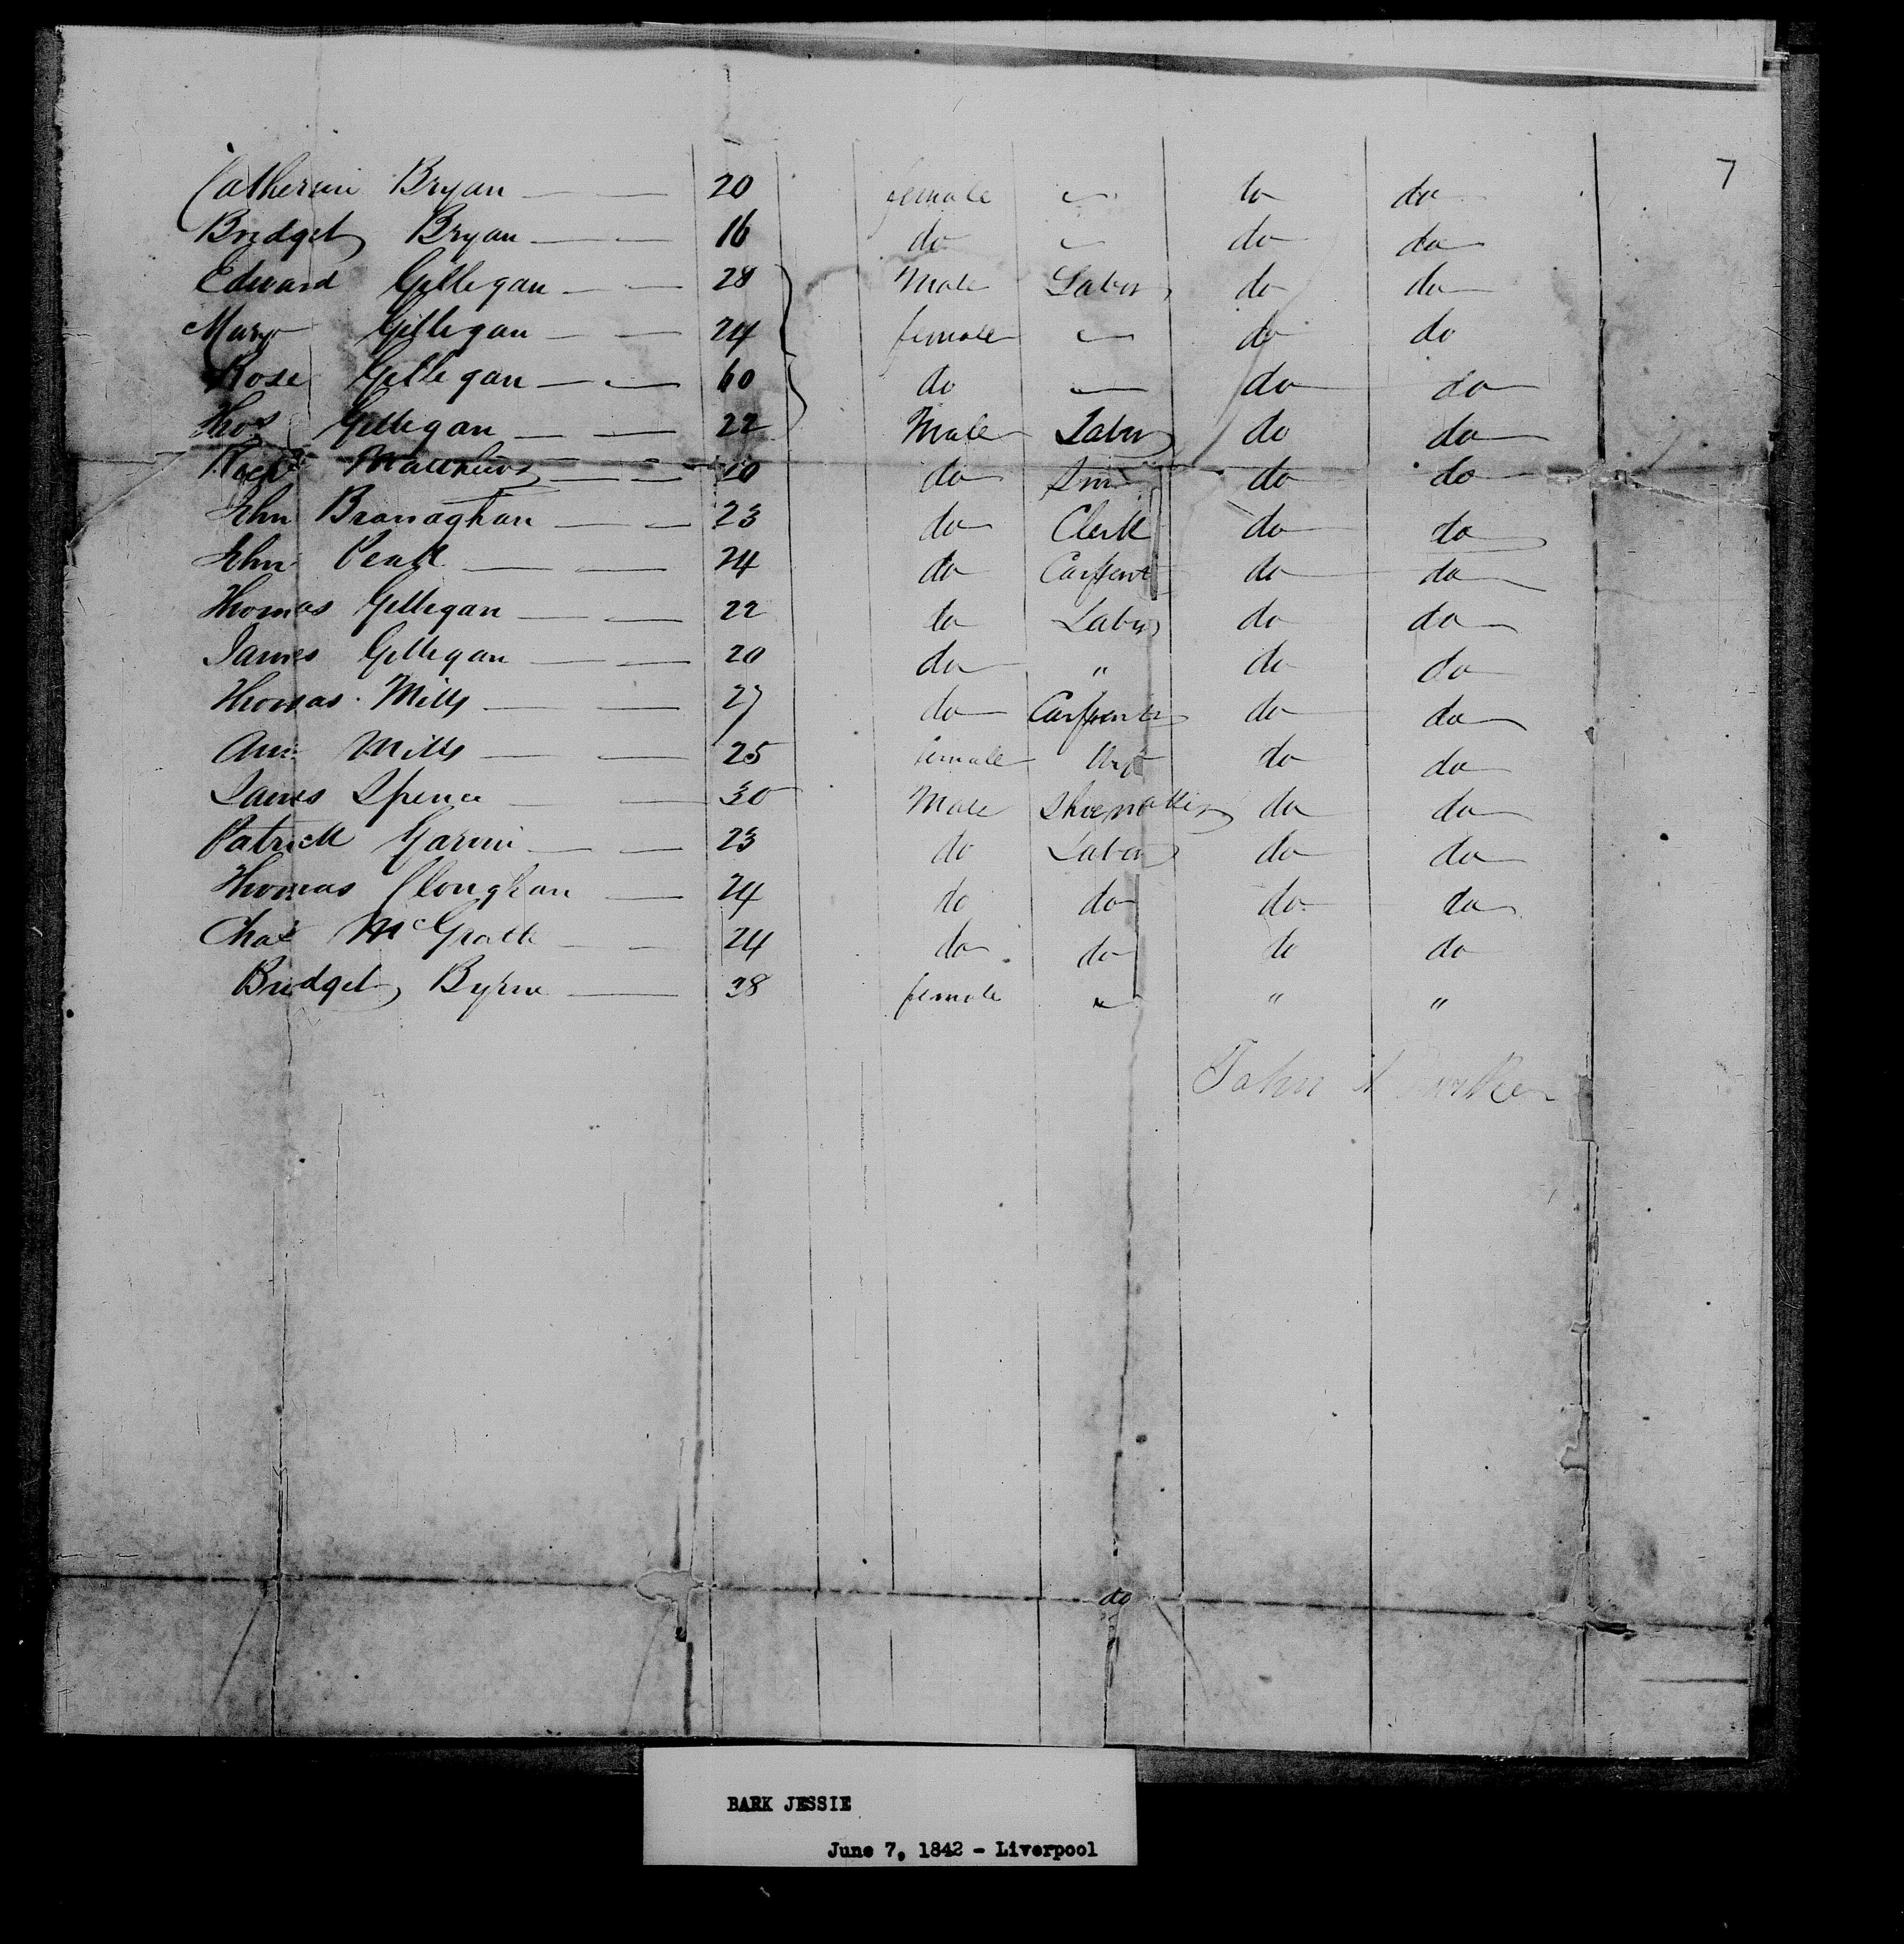 7
Catherine Bryan — — 20 female do do
Bridget Bryan — — 16 do do do
Edward Gilligan — — 28 Male Labor do do
Mary Gilligan — — 24 female do do
Rose Gilligan — — 60 do — do do
Thos Gilligan — — 22 Male Labor do do
Matthews — — do do do
John Branaghan — — 23 do Clerk do do
John — — 24 do Carpent do do
Thomas Gilligan — — 22 do Labor do do
James Gilligan — — 20 do " do do
Thomas Mills — — 27 do Carpenter do do
Ann Mills — — 25 female do do
James Spence — — 30 Male Shoemaker do do
Patrick — — 23 do Labor do do
Thomas Cloughan — 24 do do do do
Chas McGrath — — 24 do do do do
Bridget Byrne — 38 female " " "
John
do
BARK JESSIE
June 7, 1842 - Liverpool